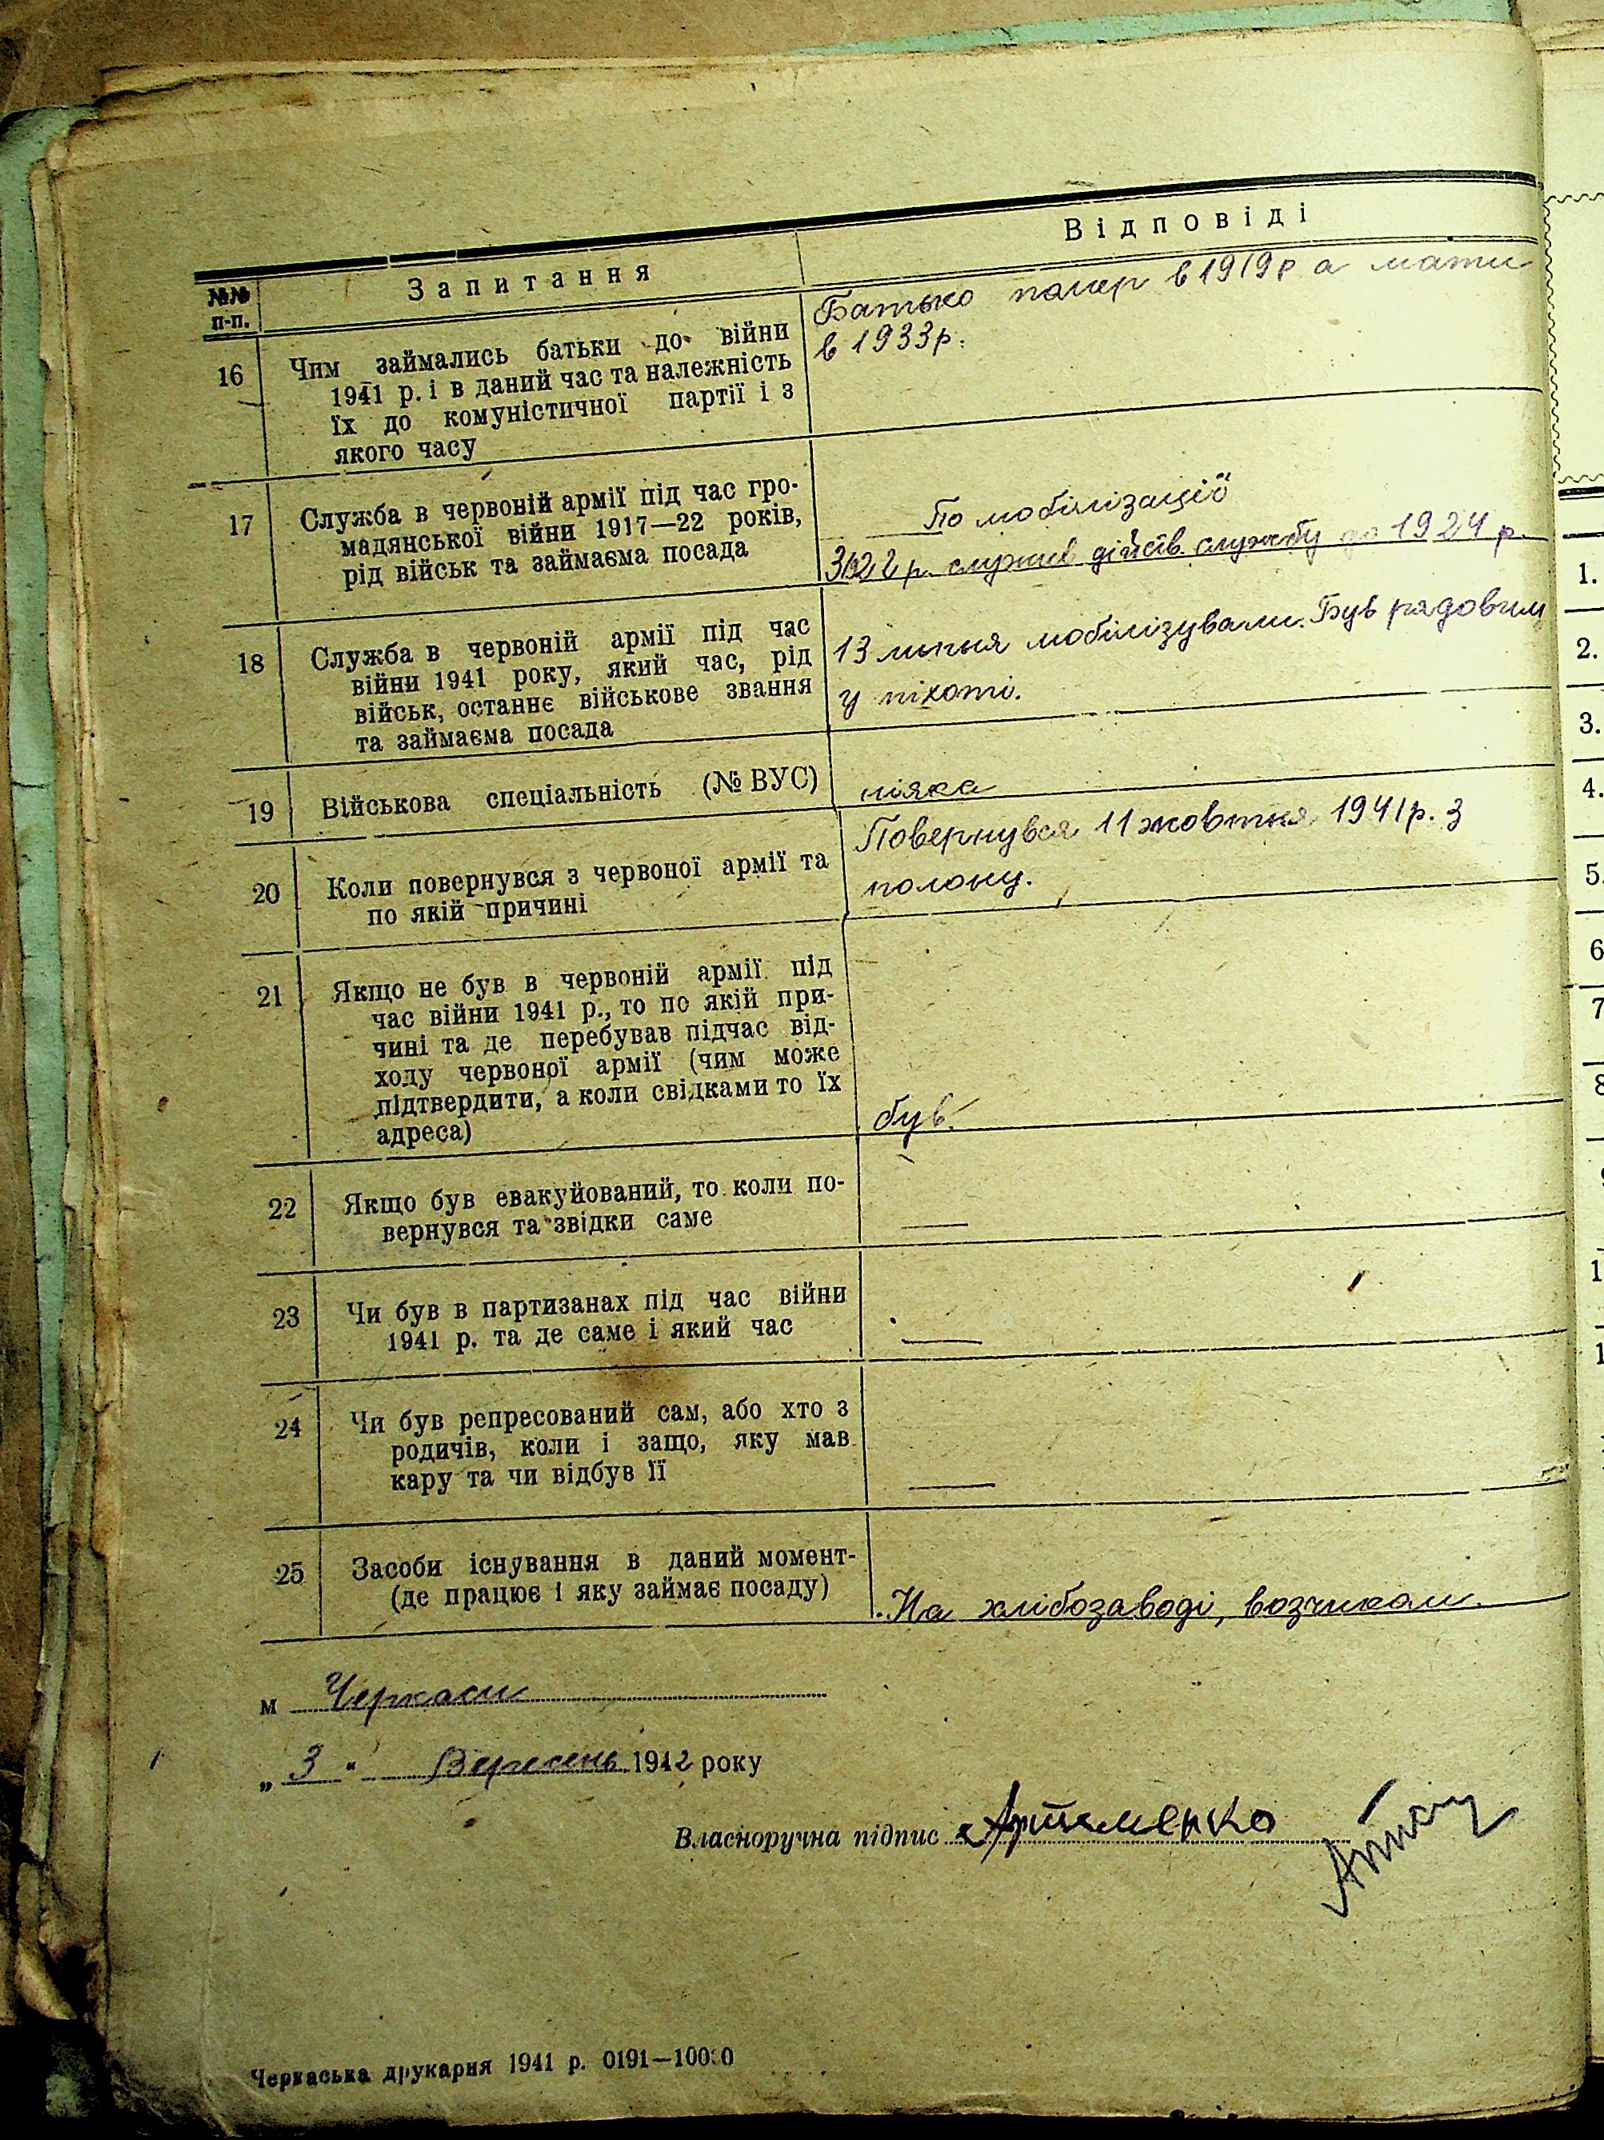 №№ п-п.
Запитання
Відповіді
16
Чим займались батьки до війни
1941 р. і в даний час та належність
їх до комуністичної партії і з
якого часу
Батько помер в 1919р а мати
в 1933р.
17
Служба в червоній армії під час гро-
мадянської війни 1917—22 років,
рід військ та займаєма посада
По мобілізації
З 1922 р. служив дійств. службу до 1924 р.
18
Служба в червоній армії під час
війни 1941 року, який час, рід
військ, останнє військове звання
та займаєма посада
13 липня мобілізували. Був рядовим
у піхоті.
19
Військова спеціальність (№ ВУС)
ніяка
20
Коли повернувся з червоної армії та
по якій причині
Повернувся 11 жовтня 1941р. з
полону.
21
Якщо не був в червоній армії під
час війни 1941 р., то по якій при-
чині та де перебував підчас від-
ходу червоної армії (чим може
підтвердити, а коли свідками то їх
адреса)
був.
22
Якщо був евакуйований, то коли по-
вернувся та звідки саме
—
23
Чи був в партизанах під час війни
1941 р. та де саме і який час
—
24
Чи був репресований сам, або хто з
родичів, коли і защо, яку мав
кару та чи відбув її
—
25
Засоби існування в даний момент-
(де працює і яку займає посаду)
На хлібозаводі, возчиком.
м Черкаси
„ 3 " Вересень 1942 року
Власноручна підпис Артеменко
Черкаська друкарня 1941 р. 0191—10000
1.
2.
3.
4.
5.
6
7
8